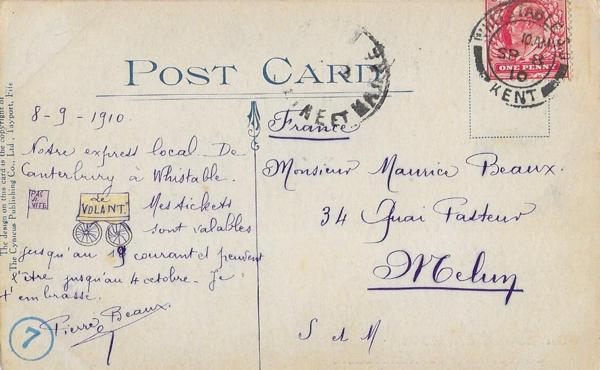 POST CARD
The design on this card is the copyright of
The Cynicus Publishing Co., Ltd., Tayport, Fife
8-9-1910.
Notre express local. De
Canterbury à Whistable.
PAS
SI
VITE
Le
VOLANT.
Mes tickets
sont valables
jusqu'au 19 courant et peuvent
l'être jusqu'au 4 octobre. Je
t'embrasse.
Pierre Beaux
7
France.
Monsieur Maurice Beaux.
34 Quai Pasteur
Melun
S et M.
ONE PENNY
WHITSTABLE
SP 8
10
KENT
ET